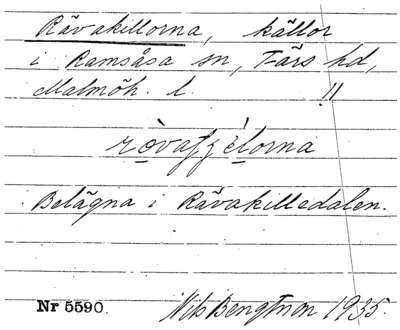 Rävakillorna, källor
i Ramsåsa sn, Färs hd,
Malmöh. l. !!
ròvaſzélorna
Belägna i Rävakilledalen.
Nr 5590. Nils Bengtsson 1935.